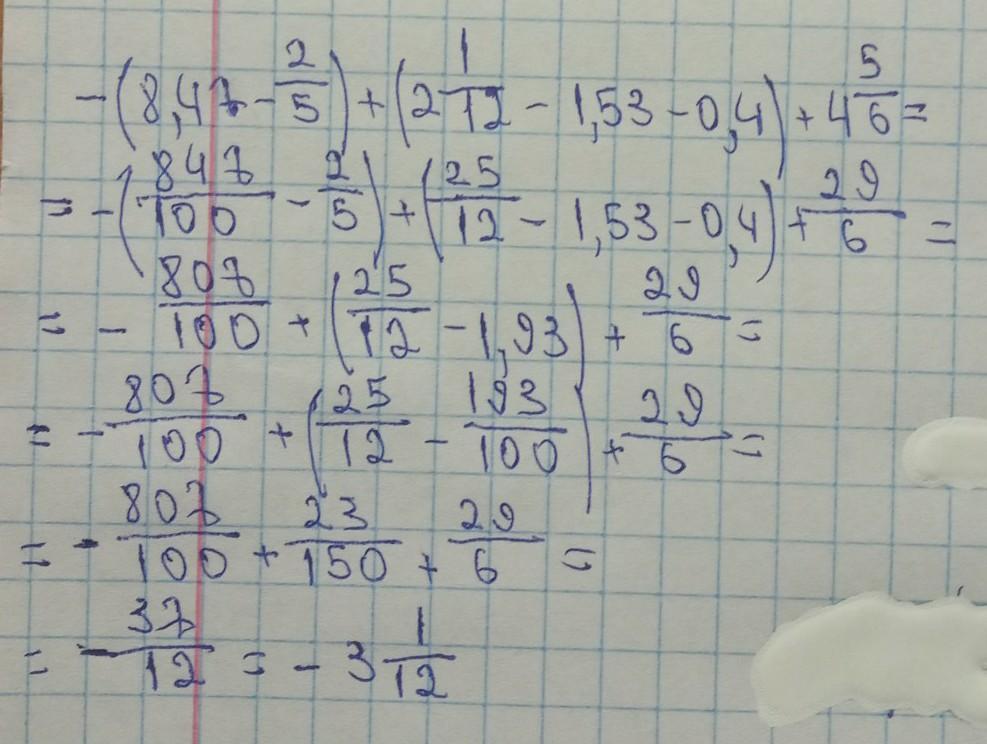 -(8,47-2/5)+(2 1/12 - 1,53-0,4)+4 5/6=
=-(847/100-2/5)+(25/12-1,53-0,4)+29/6=
=-807/100+(25/12-1,93)+29/6=
=-807/100+(25/12-193/100)+29/6=
=-807/100+23/150+29/6=
=-37/12=-3 1/12